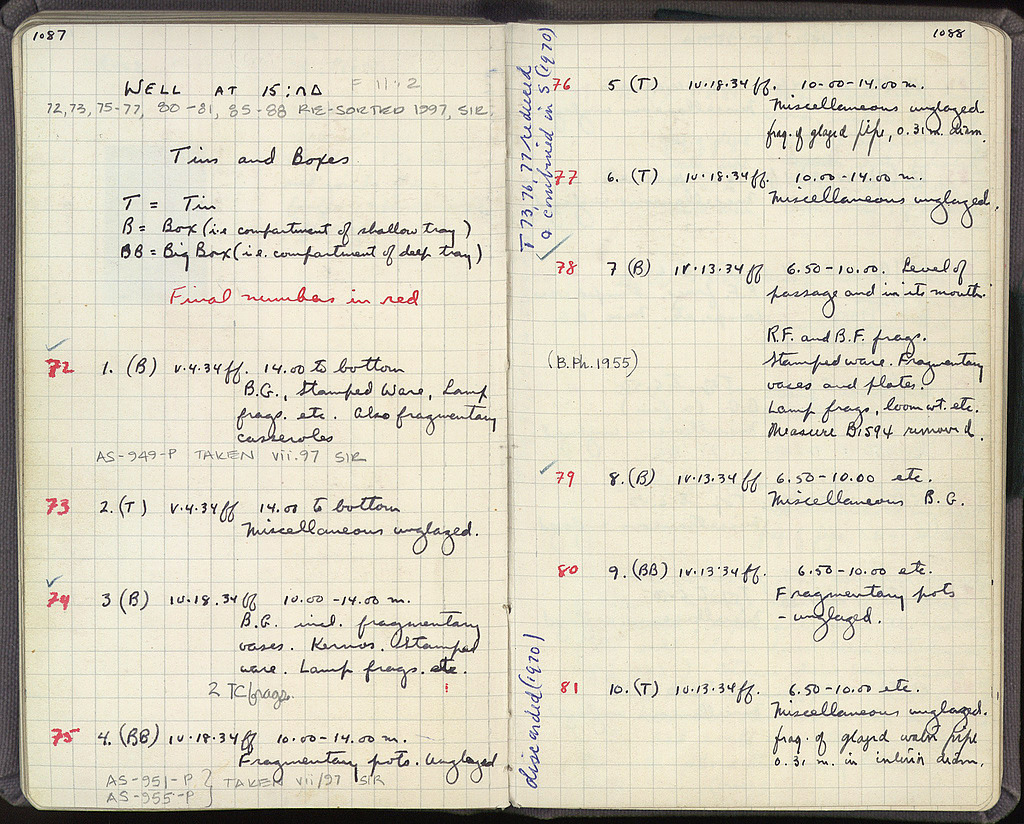 1087
WELL AT 15:ΝΔ F 11:2
72,73,75-77, 80-81, 85-88 RE-SORTED 1997, SIR.
Tins and Boxes
T = Tin
B = Box (i.e compartment of shallow tray)
BB = Big Box (i.e. compartment of deep tray)
Final numbers in red
72 1. (B) V.4.34ff. 14.00 to bottom
B.G., Stamped Ware, Lamp
frags. etc. Also fragmentary
casseroles
AS-949-P TAKEN vii.97 SIR
73 2. (T) V.4.34ff 14.00 to bottom
Miscellaneous unglazed.
74 3 (B) IV.18.34ff 10.00-14.00 m.
B.G. incl. fragmentary
vases. Kernos. Stamped
ware. Lamp frags. etc.
2 TC frags.
75 4. (BB) IV.18.34ff 10.00-14.00 m.
Fragmentary pots. Unglazed
AS-951-P } TAKEN vii/97 SIR
AS-955-P
1088
T 73, 76, 77 reduced
& combined in 5 (1970)
76 5 (T) IV.18.34ff. 10.00-14.00 m.
Miscellaneous unglazed.
frag. of glazed pipe, 0.31 m. diam.
77 6. (T) IV.18.34ff. 10.00-14.00 m.
Miscellaneous unglazed.
78 7 (B) IV.13.34ff 6.50-10.00. Level of
passage and in its mouth.
R.F. and B.F. frags.
(B.Ph.1955) Stamped ware. Fragmentary
vases and plates.
Lamp frags, loom wt. etc.
Measure B1594 removed.
79 8. (B) IV.13.34ff 6.50-10.00 etc.
Miscellaneous B.G.
80 9. (BB) IV.13.34ff. 6.50-10.00 etc.
Fragmentary pots
- unglazed.
discarded (1970)
81 10. (T) IV.13.34ff. 6.50-10.00 etc.
Miscellaneous unglazed.
frag. of glazed water pipe
0.31 m. in interior diam.